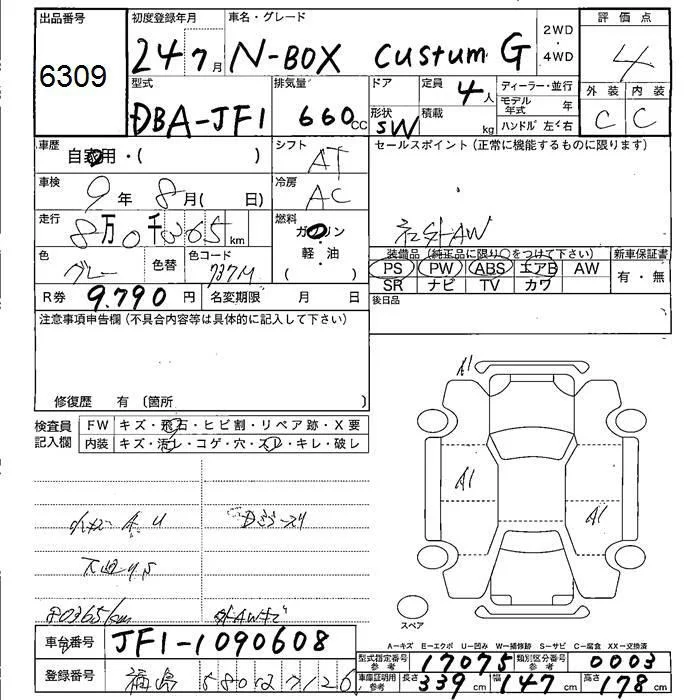 出品番号 初度登録年月 車名・グレード 2WD・4WD 評価点
6309 24 7月 N-BOX custum G 4
型式 排気量 ドア 定員 4人 ディーラー・並行 外装 内装
DBA-JF1 660cc 形状 SW 積載 kg モデル年式 年 C C
ハンドル 左く右
車歴 自家用・( ) シフト AT セールスポイント(正常に機能するものに限ります)
車検 9年 8月( 日) 冷房 AC
走行 8万0千365km 燃料 ガソリン・軽・油 ( ) 社外AW
色 グレー 色替 色コード 737M
装備品(純正品に限り○をつけて下さい) 新車保証書
PS PW ABS エアB AW 有・無
SR ナビ TV カワ
R券 9.790円 名変期限 月 日 後日品
注意事項申告欄(不具合内容等は具体的に記入して下さい)
修復歴 有〔箇所 〕
A1
A1
A1
検査員記入欄 FW キズ・飛石・ヒビ割・リペア跡・X要
内装 キズ・汚レ・コゲ・穴・スレ・キレ・破レ
80365km
スペア
A-キズ E-エクボ U-凹み W-補修跡 S-サビ C-腐食 XX-交換済
車台番号 JF1-1090608
型式指定番号参考 17075 類別区分番号参考 0003
登録番号 福島 580
車庫証明用参考 長さ 339cm 幅 147cm 高さ 178cm